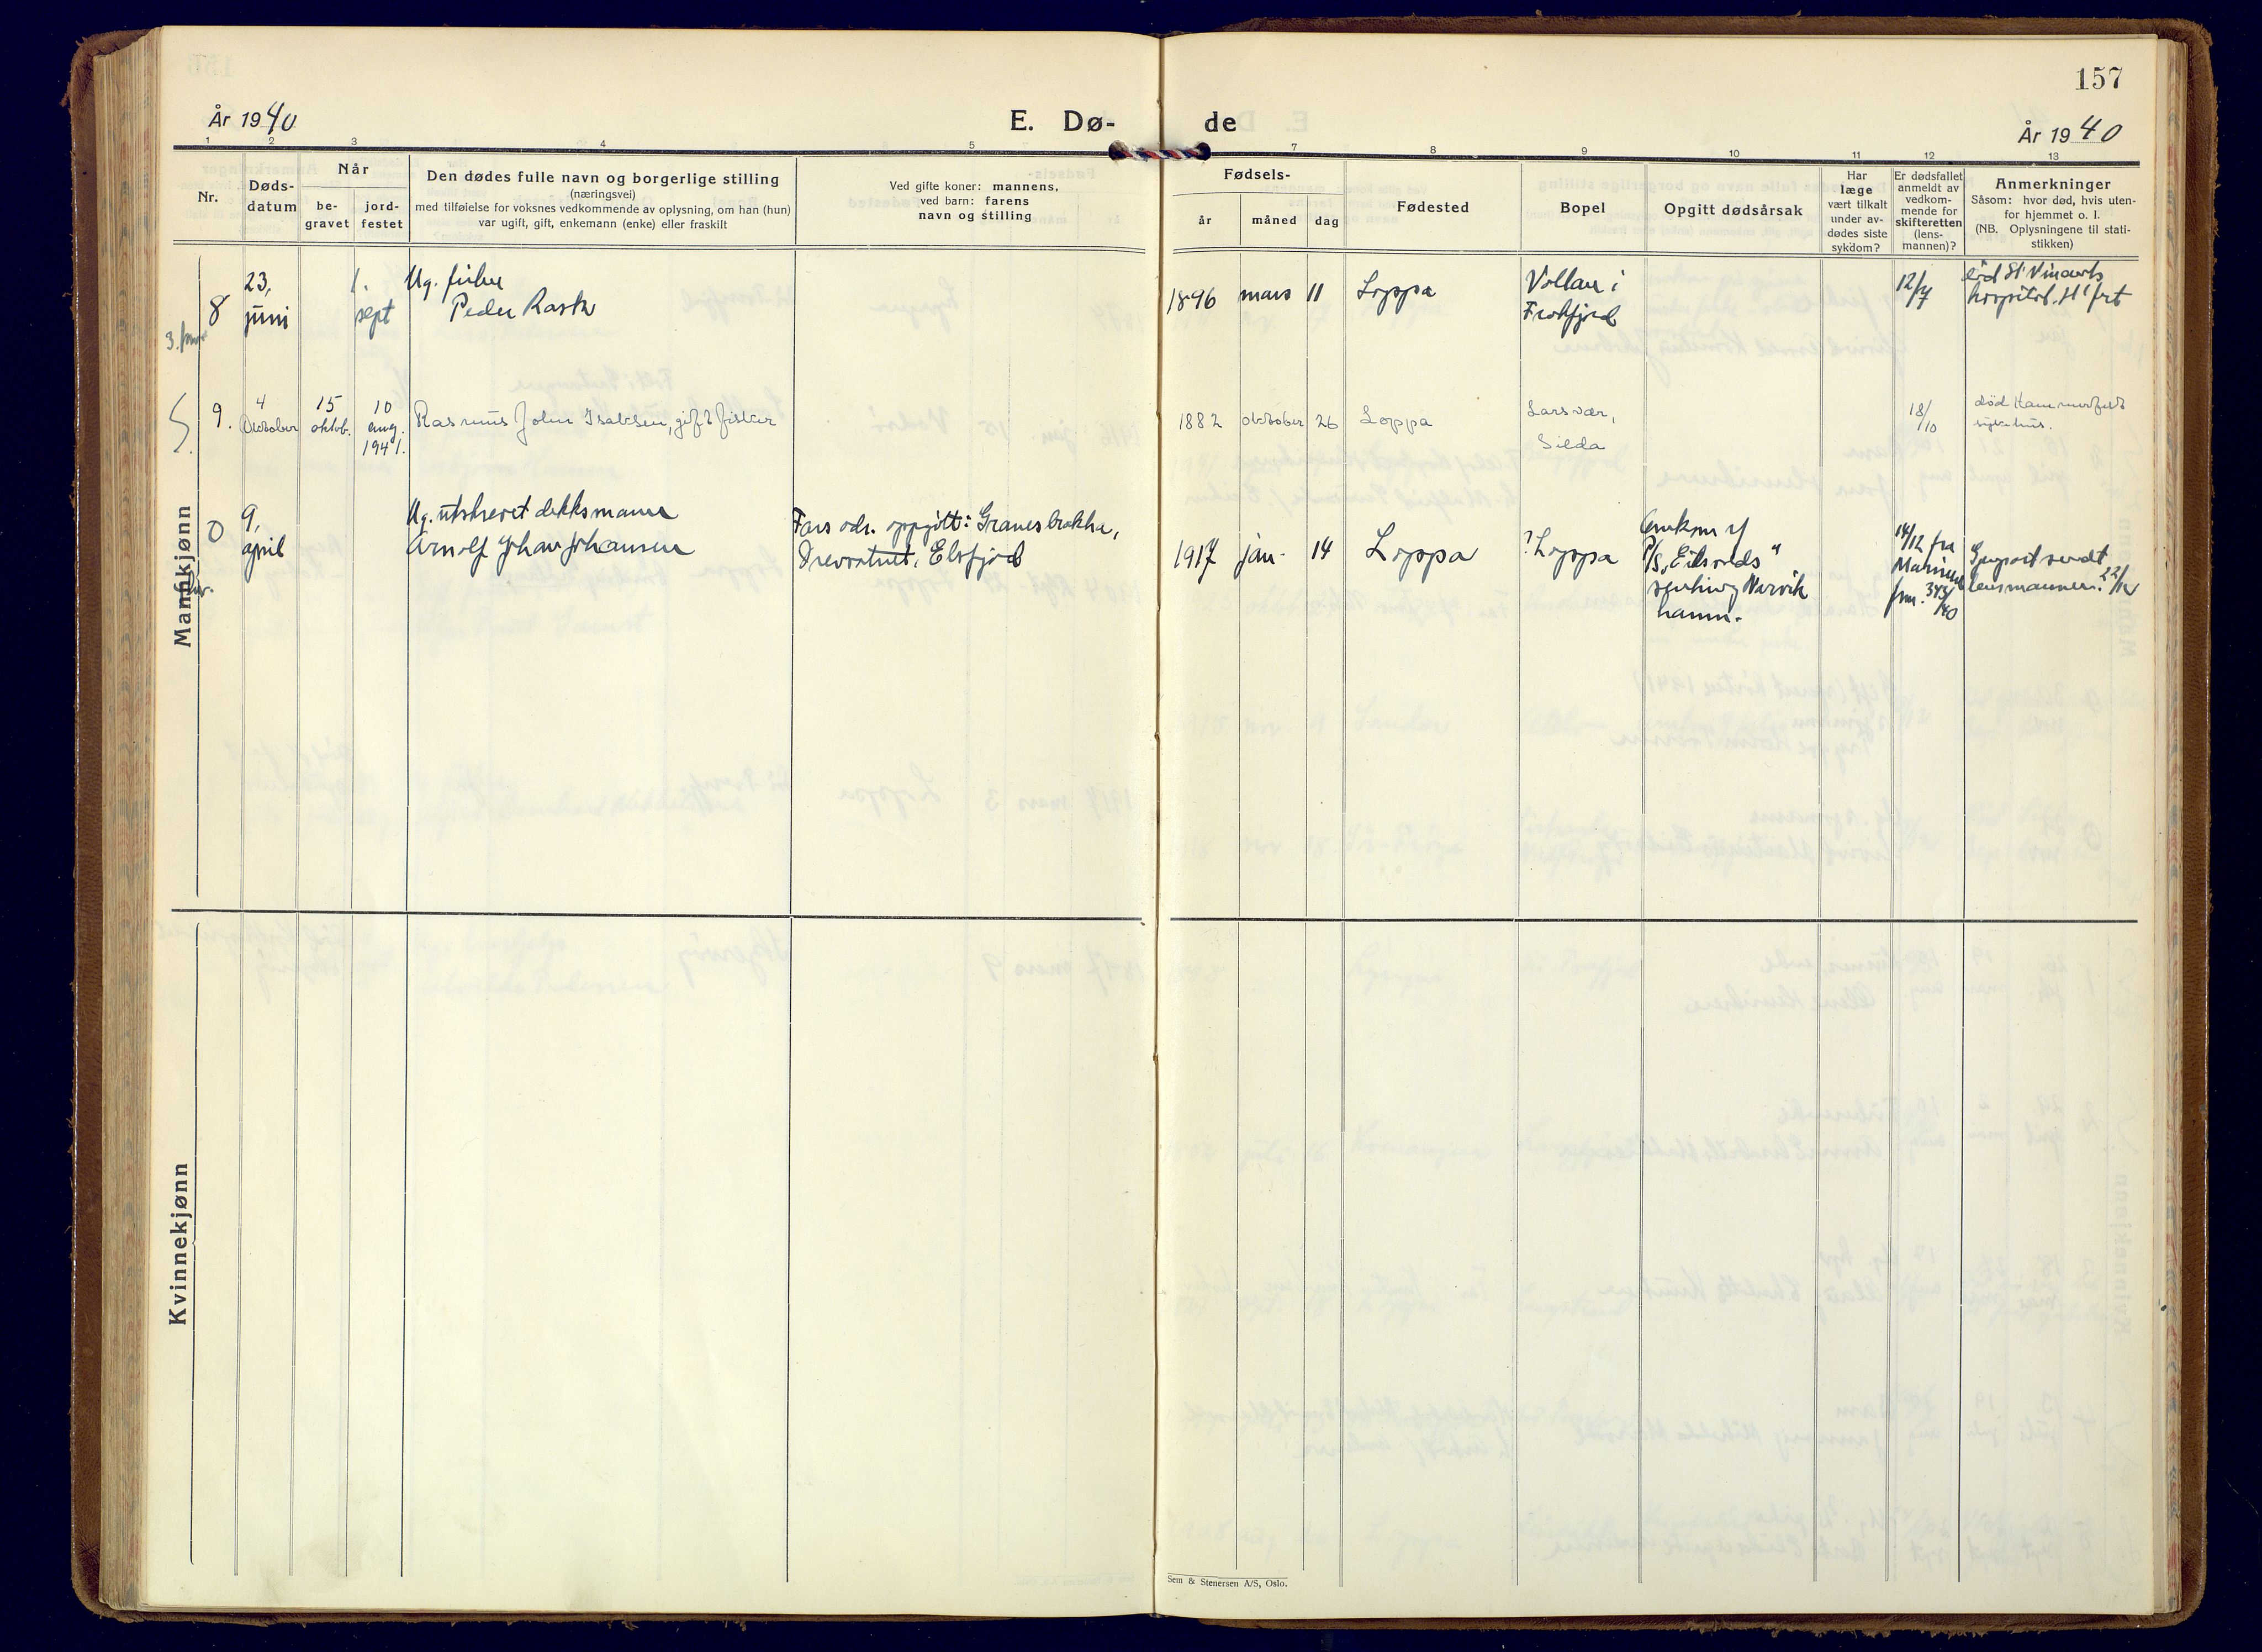 157
År 1940
E. Dø- de
År 1940
1 2 3 4 5 7 8 9 10 11 12 13
Nr.
Døds-
datum
Når
be-
gravet
jord-
festet
Den dødes fulle navn og borgerlige stilling
(næringsvei)
med tilføielse for voksnes vedkommende av oplysning, om han (hun)
var ugift, gift, enkemann (enke) eller fraskilt
Ved gifte koner: mannens,
ved barn: farens
navn og stilling
Fødsels-
år måned dag
Fødested
Bopel
Opgitt dødsårsak
Har
læge
vært tilkalt
under av-
dødes siste
sykdom?
Er dødsfallet
anmeldt av
vedkom-
mende for
skifteretten
(lens-
mannen)?
Anmerkninger
Såsom: hvor død, hvis uten-
for hjemmet o. l.
(NB. Oplysningene til stati-
stikken)
Mannkjønn
8
23,
juni
1.
sept
Ug. fisker
Peder Rask
1896 mars 11
Loppa
Vollan i
12/7
død St. Vincents
hospital, H'frt
9.
4
Oktober
15
oktob.
10
aug.
1941.
Rasmus John Isaksen, gift fisker
1882 oktober 26
Loppa
Larsvær,
Silda
18/10
død Hammerfest
sykehus.
0
9,
april
Ug. utskrevet dekksmann
Arnolf Johan Johansen
Fars adr. oppgitt:
Drevvatnet, Elsfjord
1917 jan. 14
Loppa
? Loppa
Omkom
P/S "Eidsvolds"
Narvik
havn.
14/12 fra
343/40
lensmannen 22/12
Kvinnekjønn
Sem & Stenersen A/S, Oslo.